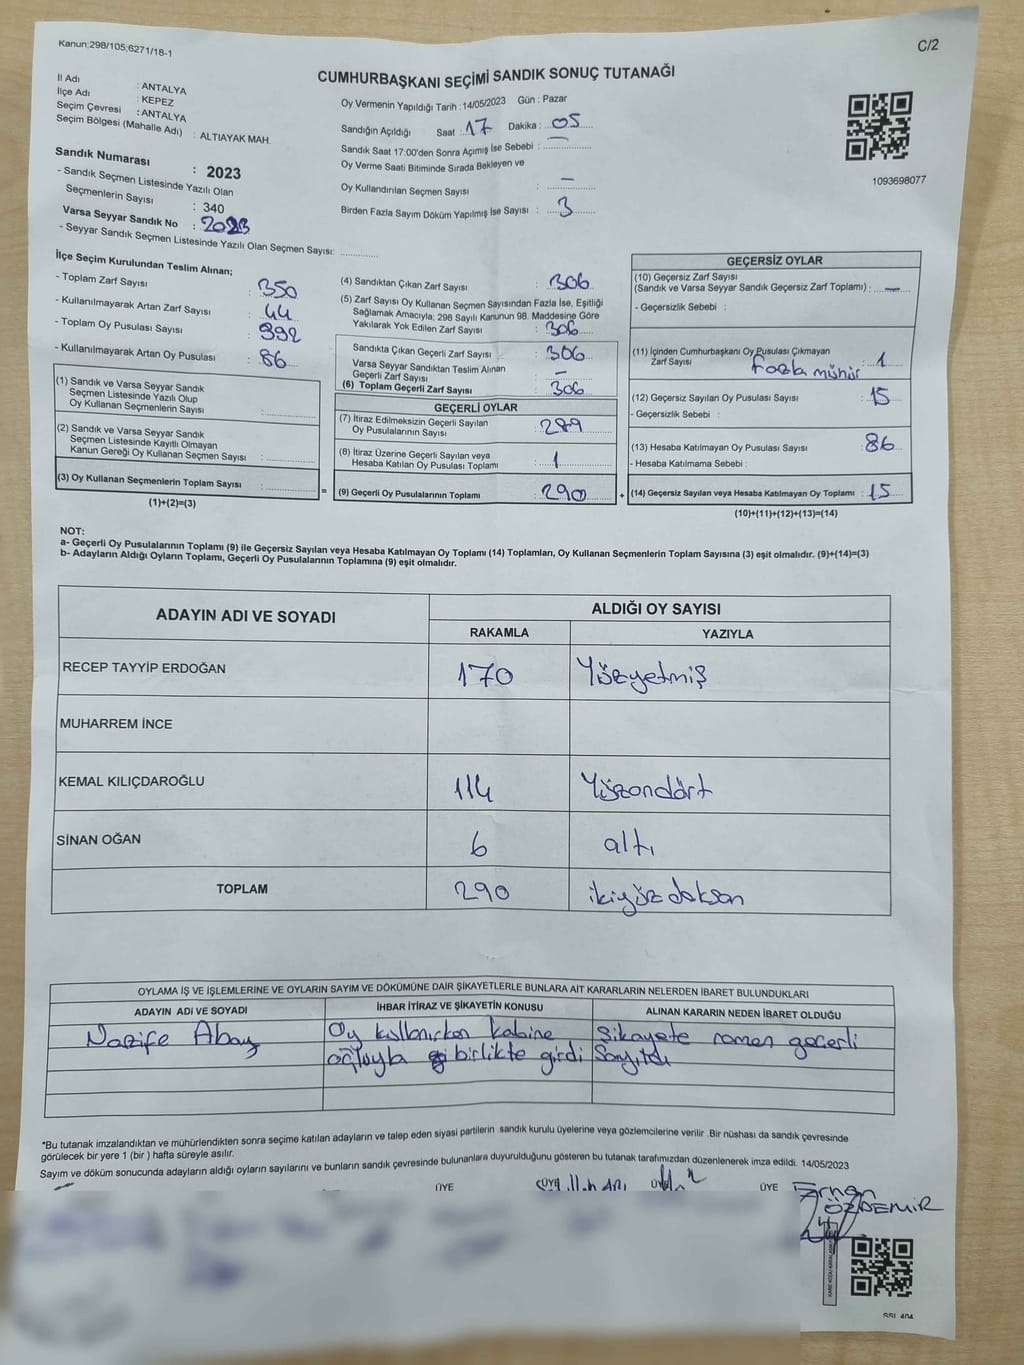 Kanun:298/105;6271/18-1
C/2
CUMHURBAŞKANI SEÇİMİ SANDIK SONUÇ TUTANAĞI
İl Adı : ANTALYA
İlçe Adı : KEPEZ
Seçim Çevresi : ANTALYA
Seçim Bölgesi (Mahalle Adı) : ALTIAYAK MAH.
Oy Vermenin Yapıldığı Tarih :14/05/2023 Gün : Pazar
Sandığın Açıldığı Saat : 17 Dakika : 05
Sandık Saat 17:00'den Sonra Açımış İse Sebebi : —
Oy Verme Saati Bitiminde Sırada Bekleyen ve
Oy Kullandırılan Seçmen Sayısı : —
Birden Fazla Sayım Döküm Yapılmış İse Sayısı : 3
1093698077
Sandık Numarası : 2023
- Sandık Seçmen Listesinde Yazılı Olan
Seçmenlerin Sayısı : 340
Varsa Seyyar Sandık No : 2023
- Seyyar Sandık Seçmen Listesinde Yazılı Olan Seçmen Sayısı:
İlçe Seçim Kurulundan Teslim Alınan;
- Toplam Zarf Sayısı : 350
- Kullanılmayarak Artan Zarf Sayısı : 44
- Toplam Oy Pusulası Sayısı : 392
- Kullanılmayarak Artan Oy Pusulası : 86
(1) Sandık ve Varsa Seyyar Sandık
Seçmen Listesinde Yazılı Olup
Oy Kullanan Seçmenlerin Sayısı :
(2) Sandık ve Varsa Seyyar Sandık
Seçmen Listesinde Kayıtlı Olmayan
Kanun Gereği Oy Kullanan Seçmen Sayısı :
(3) Oy Kullanan Seçmenlerin Toplam Sayısı :
(1)+(2)=(3)
(4) Sandıktan Çıkan Zarf Sayısı : 306
(5) Zarf Sayısı Oy Kullanan Seçmen Sayısından Fazla İse, Eşitliği
Sağlamak Amacıyla; 298 Sayılı Kanunun 98. Maddesine Göre
Yakılarak Yok Edilen Zarf Sayısı : 306
Sandıkta Çıkan Geçerli Zarf Sayısı : 306
Varsa Seyyar Sandıktan Teslim Alınan
Geçerli Zarf Sayısı : —
(6) Toplam Geçerli Zarf Sayısı : 306
GEÇERLİ OYLAR
(7) İtiraz Edilmeksizin Geçerli Sayılan
Oy Pusulalarının Sayısı : 289
(8) İtiraz Üzerine Geçerli Sayılan veya
Hesaba Katılan Oy Pusulası Toplamı : 1
= (9) Geçerli Oy Pusulalarının Toplamı : 290 +
GEÇERSİZ OYLAR
(10) Geçersiz Zarf Sayısı
(Sandık ve Varsa Seyyar Sandık Geçersiz Zarf Toplamı) : —
- Geçersizlik Sebebi :
(11) İçinden Cumhurbaşkanı Oy Pusulası Çıkmayan
Zarf Sayısı : 1
Fazla mühür
(12) Geçersiz Sayılan Oy Pusulası Sayısı : 15
- Geçersizlik Sebebi :
(13) Hesaba Katılmayan Oy Pusulası Sayısı : 86
- Hesaba Katılmama Sebebi :
(14) Geçersiz Sayılan veya Hesaba Katılmayan Oy Toplamı : 15
(10)+(11)+(12)+(13)=(14)
NOT:
a- Geçerli Oy Pusulalarının Toplamı (9) ile Geçersiz Sayılan veya Hesaba Katılmayan Oy Toplamı (14) Toplamları, Oy Kullanan Seçmenlerin Toplam Sayısına (3) eşit olmalıdır. (9)+(14)=(3)
b- Adayların Aldığı Oyların Toplamı, Geçerli Oy Pusulalarının Toplamına (9) eşit olmalıdır.
ADAYIN ADI VE SOYADI ALDIĞI OY SAYISI
RAKAMLA YAZIYLA
RECEP TAYYİP ERDOĞAN 170 Yüzyetmiş
MUHARREM İNCE
KEMAL KILIÇDAROĞLU 114 Yüzondört
SİNAN OĞAN 6 altı
TOPLAM 290 ikiyüzdoksan
OYLAMA İŞ VE İŞLEMLERİNE VE OYLARIN SAYIM VE DÖKÜMÜNE DAİR ŞİKAYETLERLE BUNLARA AİT KARARLARIN NELERDEN İBARET BULUNDUKLARI
ADAYIN ADI VE SOYADI İHBAR İTİRAZ VE ŞİKAYETİN KONUSU ALINAN KARARIN NEDEN İBARET OLDUĞU
Nazife Abay Oy kullanırken kabine Şikayete ramen geçerli
oğluyla birlikte girdi Sayıldı
*Bu tutanak imzalandıktan ve mühürlendikten sonra seçime katılan adayların ve talep eden siyasi partilerin sandık kurulu üyelerine veya gözlemcilerine verilir .Bir nüshası da sandık çevresinde
görülecek bir yere 1 (bir ) hafta süreyle asılır.
Sayım ve döküm sonucunda adayların aldığı oyların sayılarını ve bunların sandık çevresinde bulunanlara duyurulduğunu gösteren bu tutanak tarafımızdan düzenlenerek imza edildi. 14/05/2023
ÜYE ÜYE ÜYE ÜYE
ÖZDEMİR